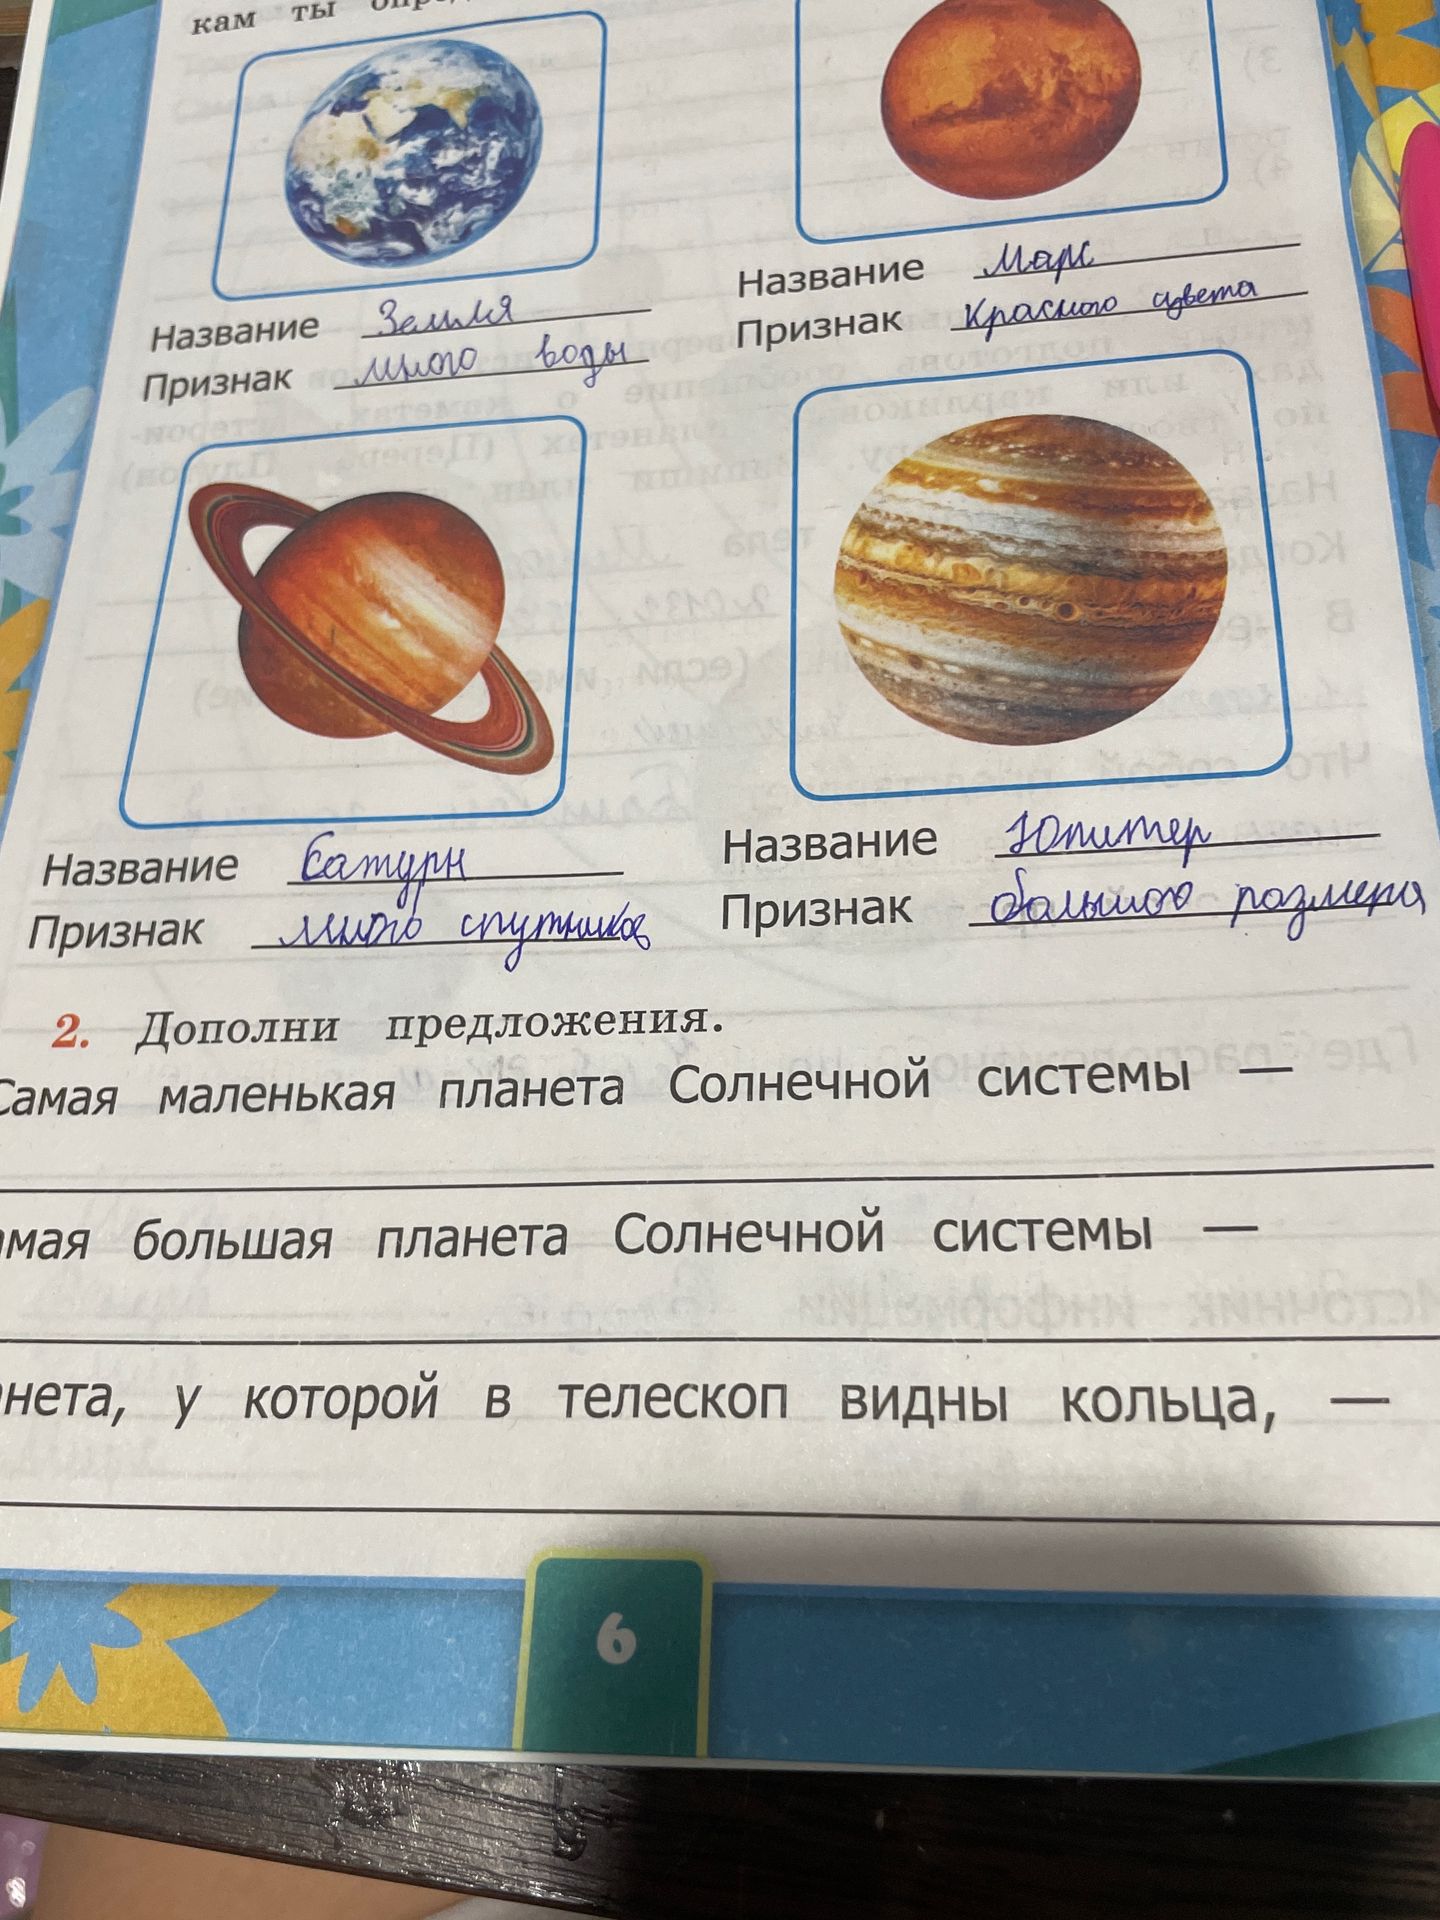 кам ты
Название Земля
Признак много воды
Название Марс
Признак Красного цвета
Название Сатурн
Признак много спутников
Название Юпитер
Признак большого размера
2. Дополни предложения.
Самая маленькая планета Солнечной системы —
амая большая планета Солнечной системы —
нета, у которой в телескоп видны кольца, —
6